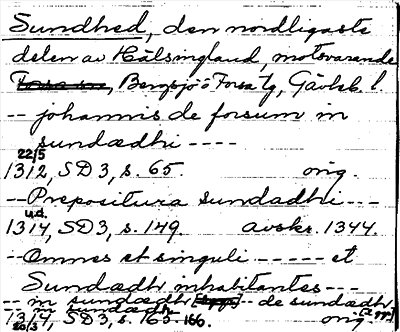 Sundhed, den nordligaste
delen av Hälsingland, motsvarande
Bergsjö ö Forsa tg, Gävleb. l.
-- johannis de forsum in
sundædhi ----
22/5
1312, SD 3, s. 65. orig.
-- Prepositura sundadhi ---
u.d.
1314, SD 3, s. 149. avskr. 1344.
-- Omnes et singuli ----- et
Sundædh inhabitantes ---
-- in sundædhr -- de sundædhr
sundædh
1314, SD 3, s. 165-166. orig
20/3